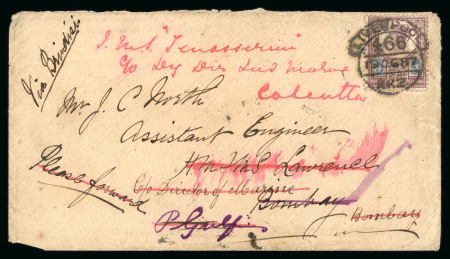 Via Brindisi
I.M.S "Tenasserim"
C/o Dy Dir Ind Marine
Calcutta
LIVERPOOL
466
Mr J. C North
Assistant Engineer
HMIMS Lawrence
C/o Director of Marine
Bombay
Please forward
P. Gulf
Bombay